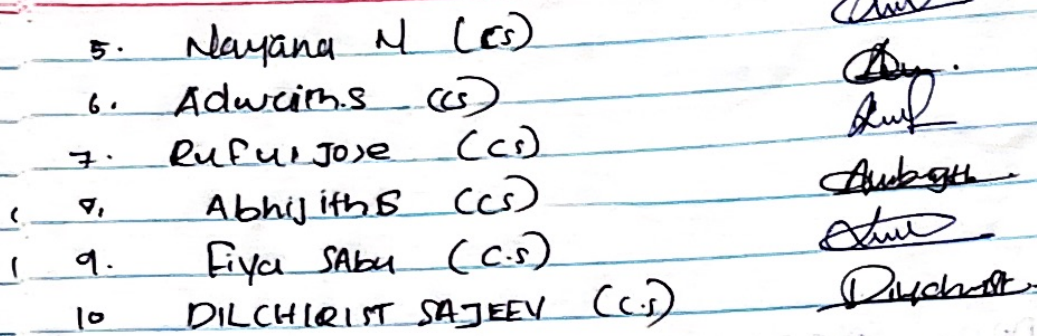 5. Nayana N (CS)
6. Adwaith.S (CS)
7. Rufus Jose (CS)
8. Abhijith S (CS)
9. Fiya SAbu (C.S)
10 DILCHRIST SAJEEV (C.S)